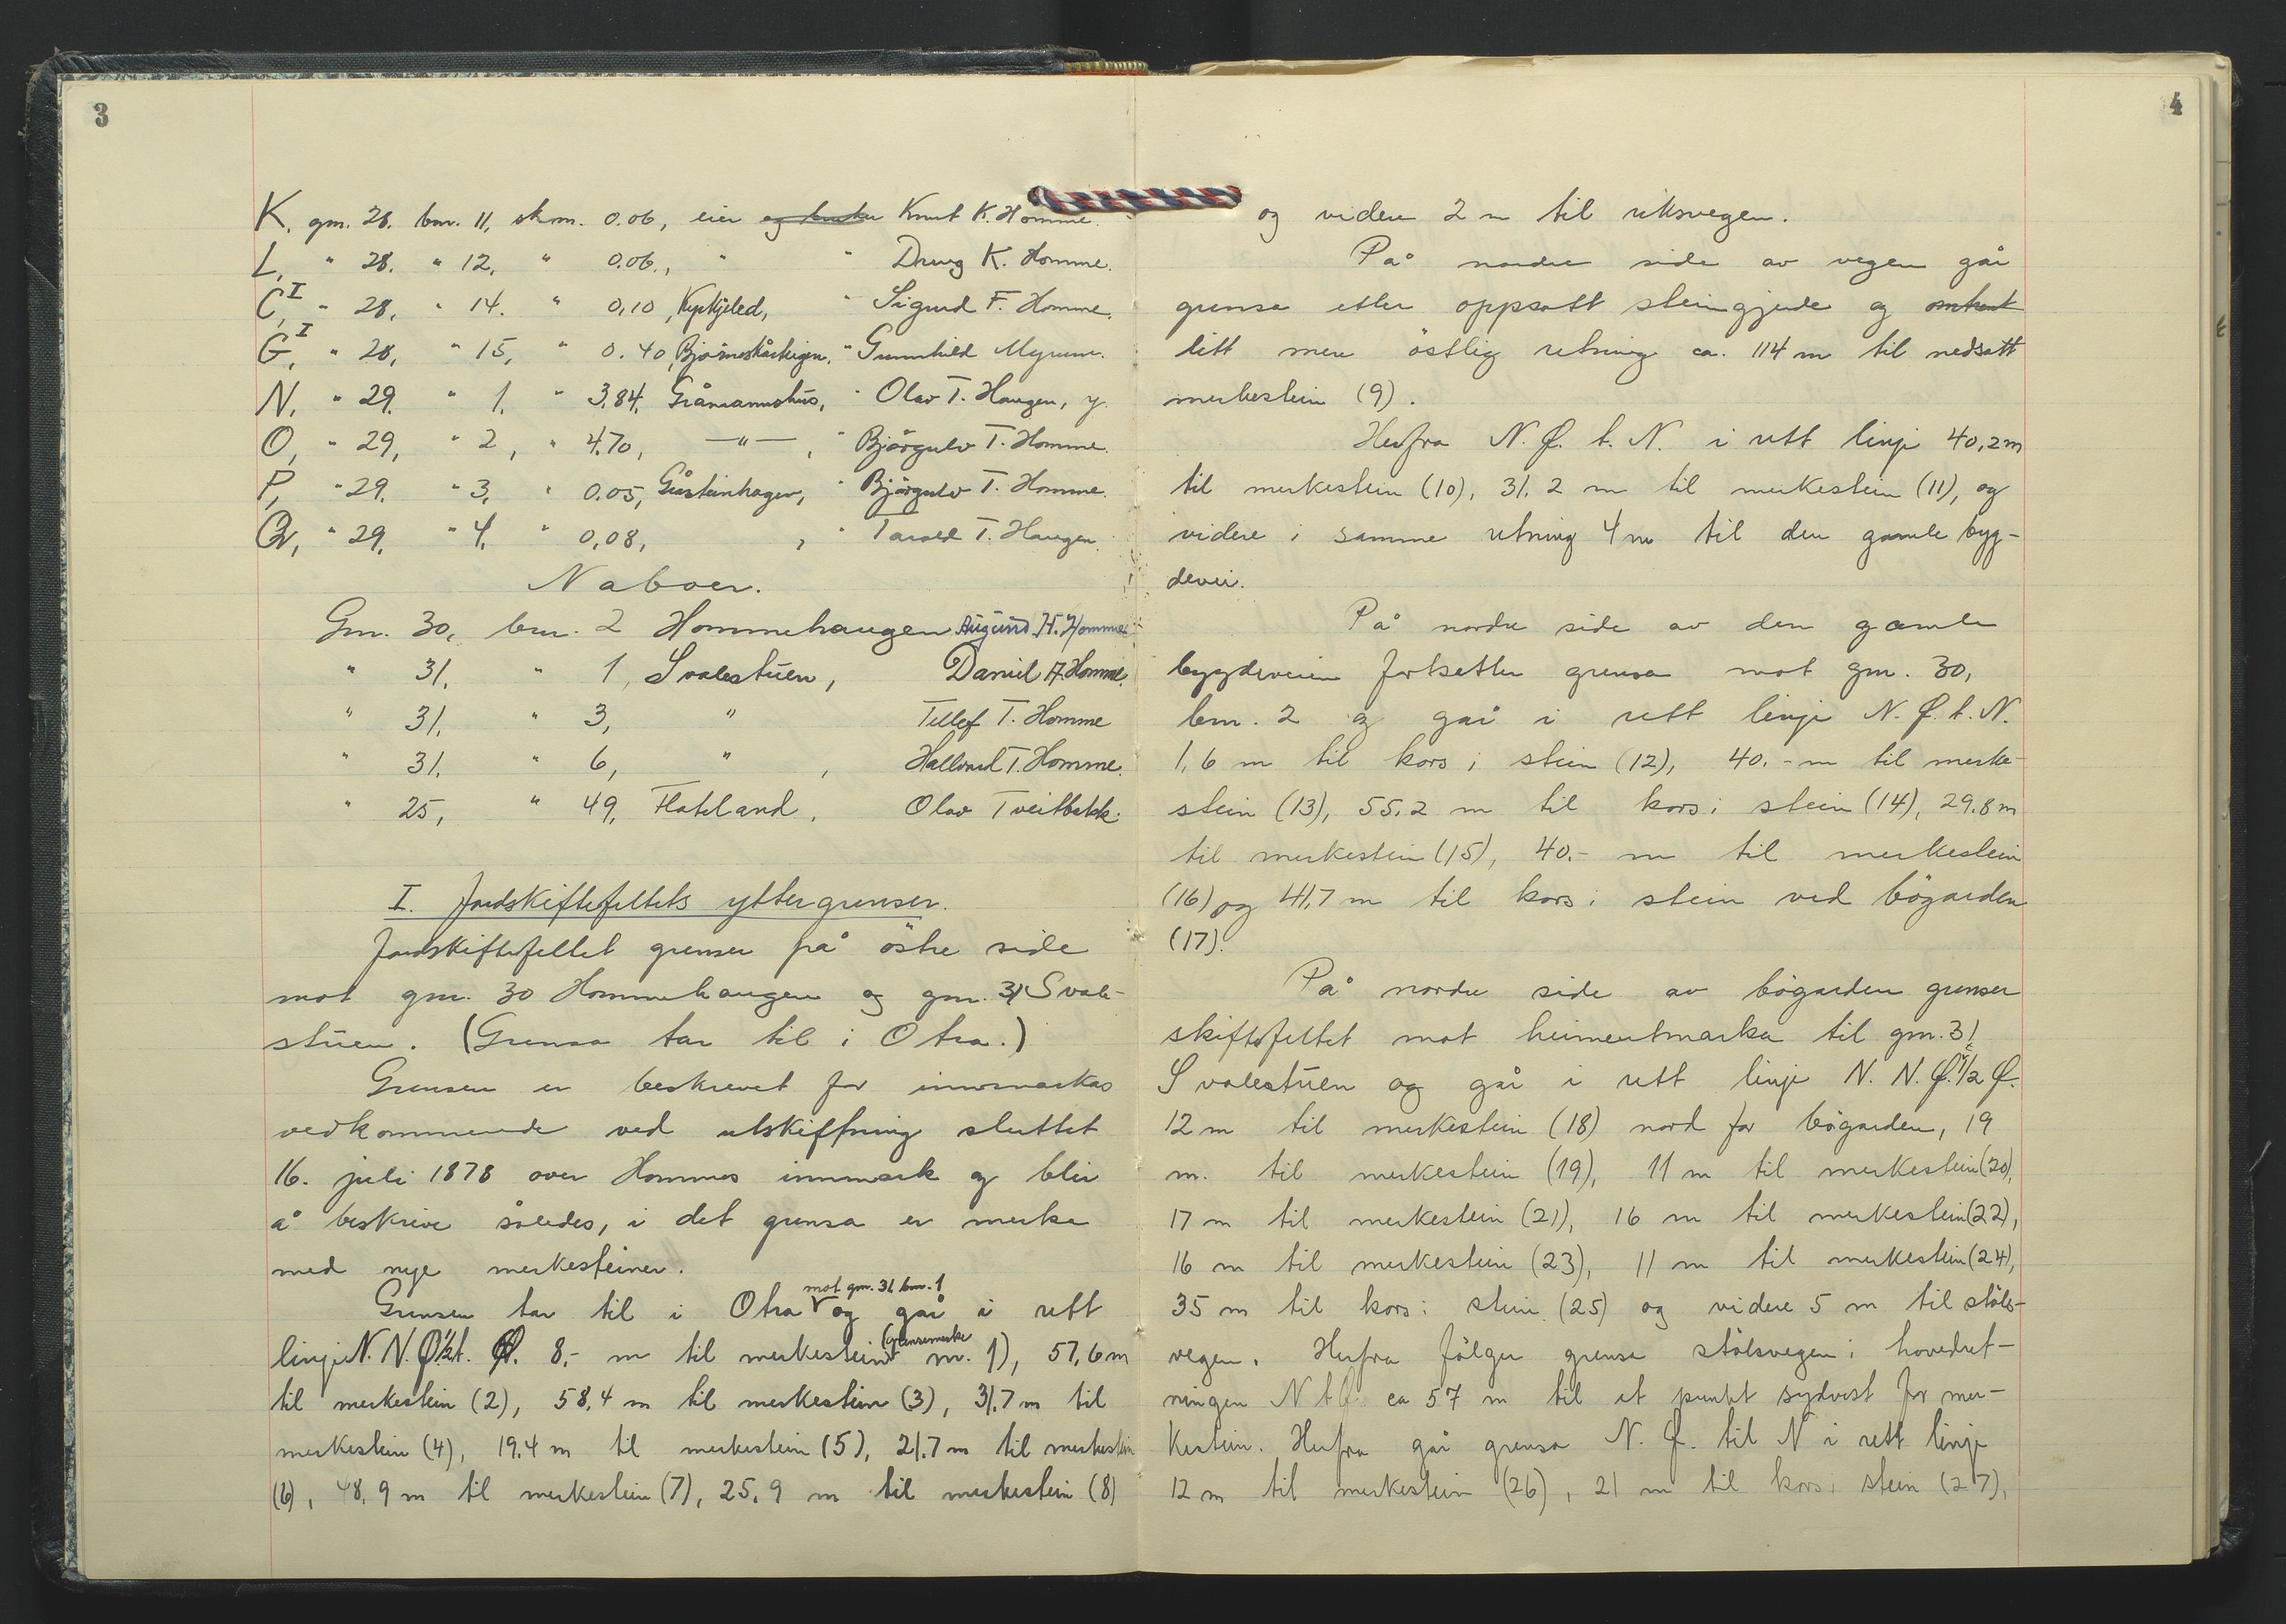 3
K, gnr. 28. bnr. 11, skm. 0.06, eier og bruker Knut K. Homme.
L, " 28. " 12, " 0.06., " " Dreng K. Homme.
C,I " 28, " 14. " 0,10, Kyrkjeled, " Sigurd F. Homme.
G,I " 28, " 15, " 0.40, " Gunnhild Myrum.
N, " 29. " 1, " 3,84, " Olav T. Haugen, y.
O, " 29, " 2, " 4.70, —"— , " Björgulv T. Homme.
P, " 29. " 3, " 0.05, " Björgulv T. Homme.
Q, " 29. " 4, " 0,08, , " Tarald T. Haugen.
Naboer.
Gnr. 30, bnr. 2 Hommehaugen Augund H. Homme
" 31, " 1, Svalestuen, Daniel A. Homme.
" 31, " 3, " Tellef T. Homme
" 31. " 6, " , Hallvard T. Homme.
" 25, " 49, Flateland, Olav Tveitbekk.
I. Jordskiftefeltets yttergrenser.
Jordskiftefeltet grenser på östre side
mot gnr. 30 Hommehaugen og gnr. 31 Svale-
stuen. (Grensa tar til i Otra.)
Grensen er beskrevet for innmarkas
vedkommende ved utskiftning sluttet
16. juli 1878 over Hommes innmark og blir
å beskrive således, i det grensa er merka
med nye merkesteiner.
Grensen tar til i Otra mot gnr. 31 bnr. 1 og går i rett
linje N. N. Ø 1/2 t. Ø. 8,- m til merkestein (grensemerke nr. 1), 57,6 m
til merkestein (2), 58,4 m til merkestein (3), 31,7 m til
merkestein (4), 19,4 m til merkestein (5), 21,7 m til merkestein
(6), 48,9 m til merkestein (7), 25,9 m til merkestein (8)
4
og videre 2 m til riksvegen.
På nordre side av vegen går
grensa etter oppsatt steingjerde og omtrent
litt mere östlig retning ca. 114 m til nedsatt
merkestein (9).
Herfra N. Ø. t. N. i rett linje 40,2 m
til merkestein (10), 31,2 m til merkestein (11), og
videre i samme retning 4 m til den gamle byg-
devei.
På nordre side av den gamle
bygdeveien fortsetter grensa mot gnr. 30,
bnr. 2 og går i rett linje N. Ø. t. N.
1,6 m til kors i stein (12), 40.- m til merke-
stein (13), 55,2 m til kors i stein (14), 29,8 m
til merkestein (15), 40.- m til merkestein
(16) og 41,7 m til kors i stein ved bögarden
(17).
På nordre side av bögarden grenser
skiftefeltet mot heimeutmarka til gnr. 31
Svalestuen og går i rett linje N. N. Ø. 1/2 Ø.
12 m til merkestein (18) nord for bögarden, 19
m. til merkestein (19), 11 m til merkestein (20),
17 m til merkestein (21), 16 m til merkestein (22),
16 m til merkestein (23), 11 m til merkestein (24),
35 m til kors i stein (25) og videre 5 m til stöls-
vegen. Herfra fölger grensa stölsvegen i hovedret-
ningen N t Ø ca 57 m til et punkt sydvest for mer-
kestein. Herfra går grensa N. Ø. til N i rett linje
12 m til merkestein (26), 21 m til kors i stein (27),